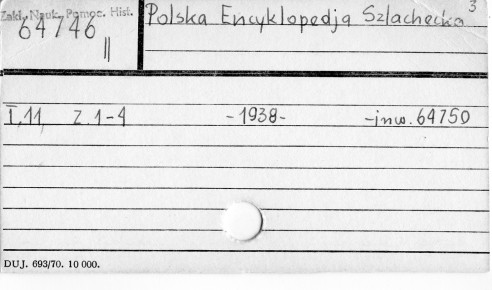 Zakł. Nauk. Pomoc. Hist.
64746
||
Polska Encyklopedja Szlachecka 3
T.11, Z.1-4 -1938- -inw. 64750
DUJ. 693/70. 10 000.